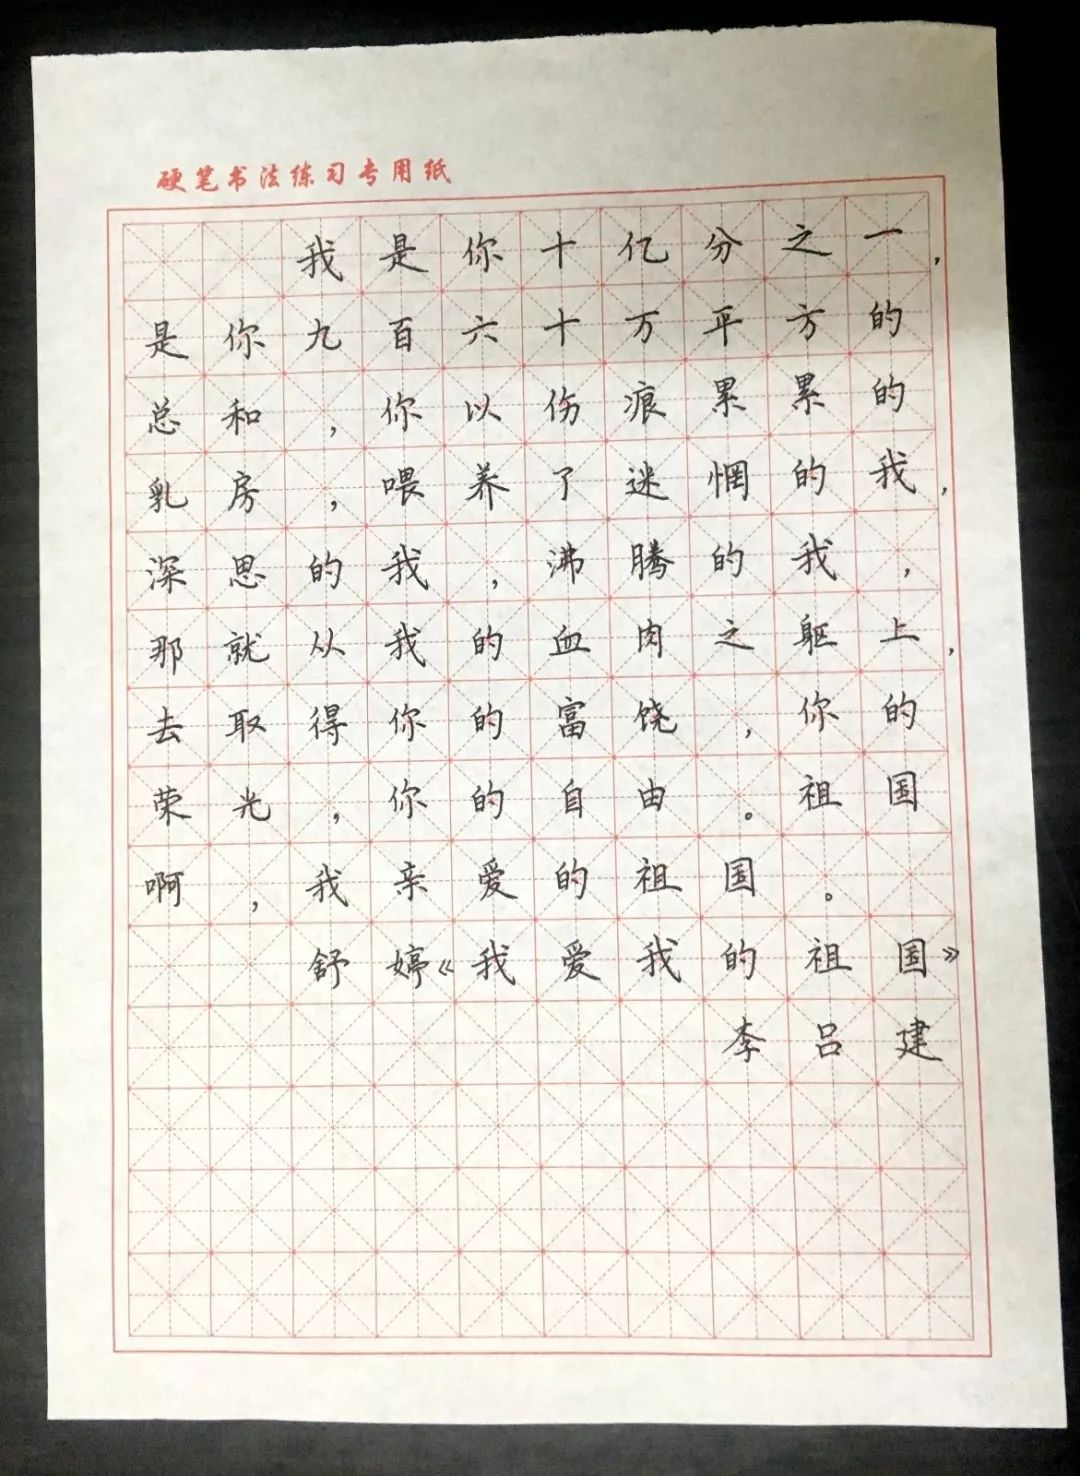 硬笔书法练习专用纸
我是你十亿分之一，
是你九百六十万平方的
总和，你以伤痕累累的
乳房，喂养了迷惘的我，
深思的我，沸腾的我，
那就从我的血肉之躯上，
去取得你的富饶，你的
荣光，你的自由。祖国
啊，我亲爱的祖国。
舒婷《我爱我的祖国》
李吕建